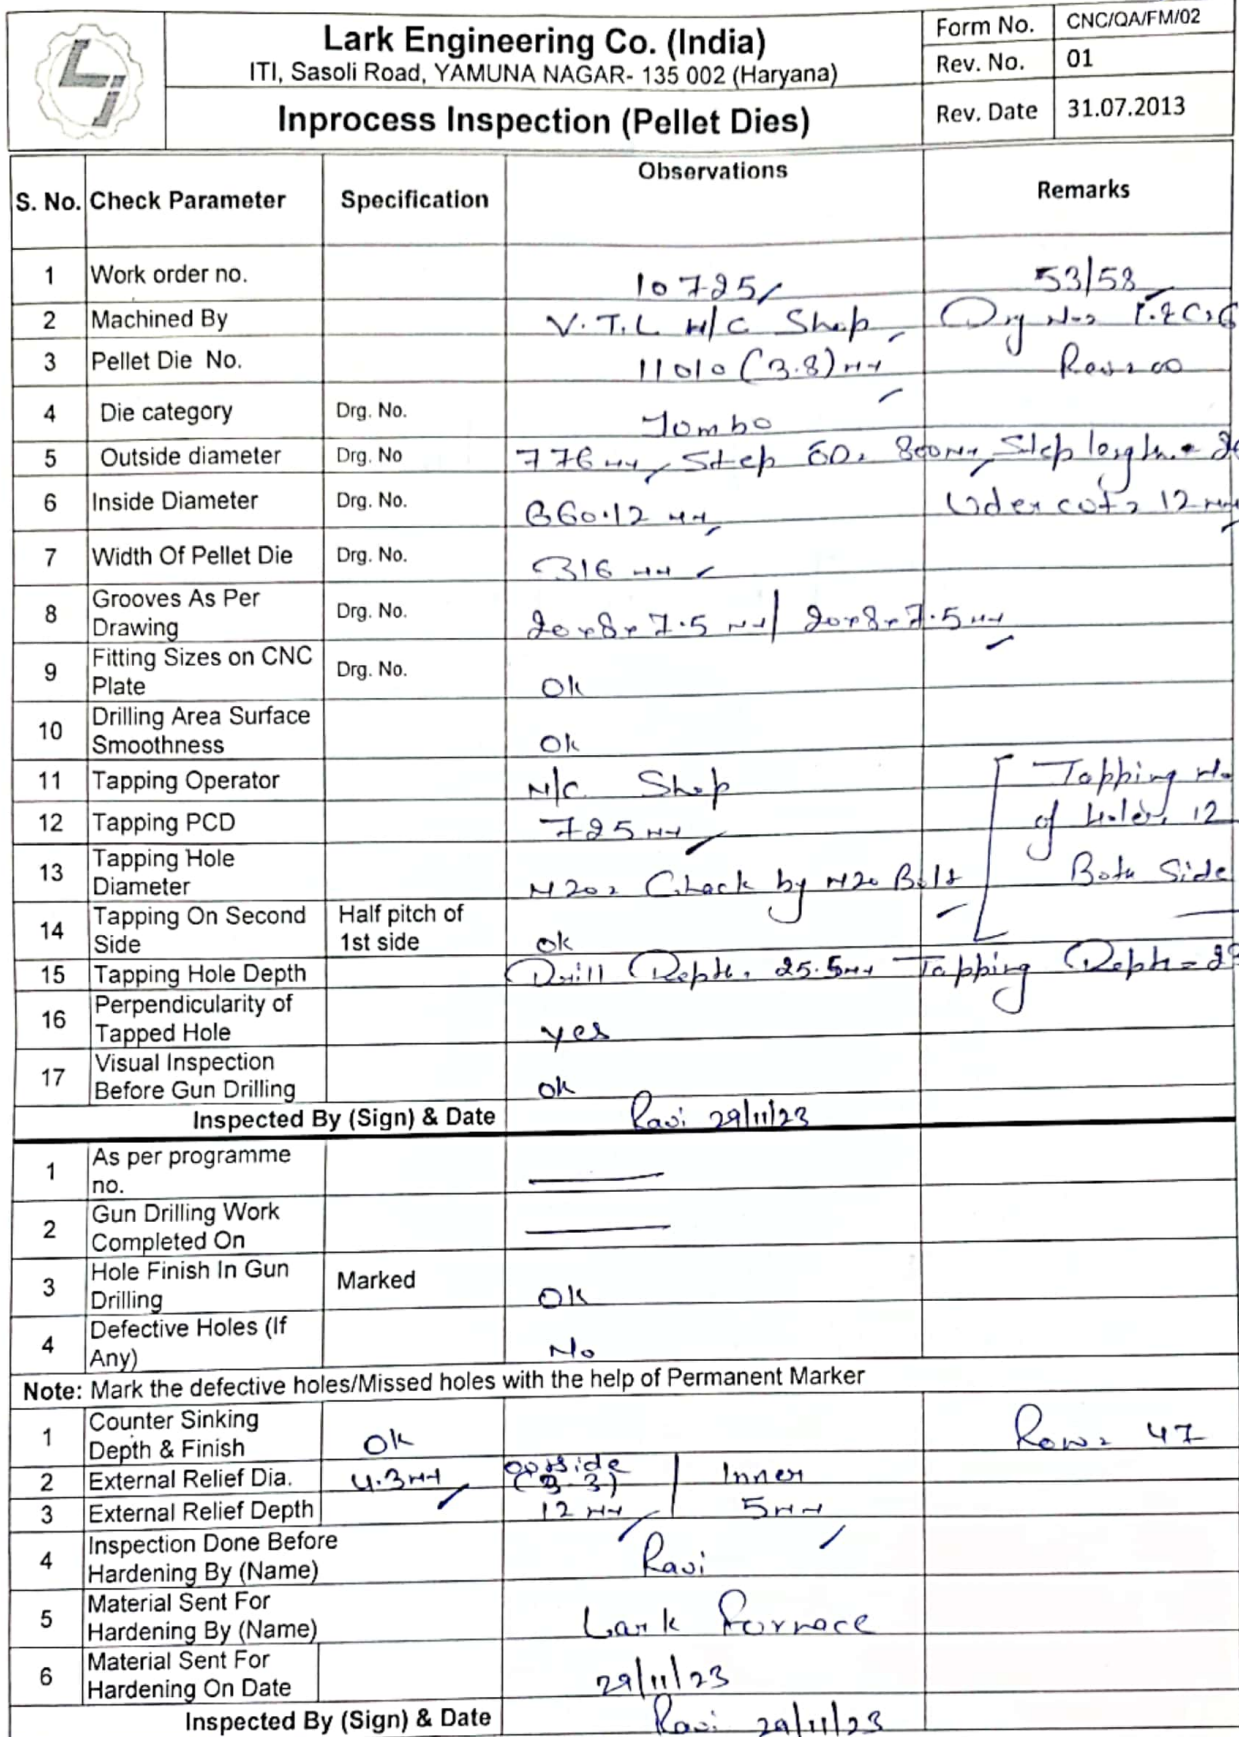 Lark Engineering Co. (India)
ITI, Sasoli Road, YAMUNA NAGAR- 135 002 (Haryana)
Inprocess Inspection (Pellet Dies)
Form No. CNC/QA/FM/02
Rev. No. 01
Rev. Date 31.07.2013
S. No. Check Parameter Specification Observations Remarks
1 Work order no. 10725 53/58
2 Machined By V.T.L M/C Shop Drg No=
3 Pellet Die No. 11010 (3.8) mm Rev=00
4 Die category Drg. No. Jumbo
5 Outside diameter Drg. No 776 mm Step OD= 800mm Step length=
6 Inside Diameter Drg. No. 660.12 mm Udercut= 12 mm
7 Width Of Pellet Die Drg. No. 316 mm
8 Grooves As Per
Drawing Drg. No. 20x8x7.5 mm/ 20x8x7.5 mm
9 Fitting Sizes on CNC
Plate Drg. No. Ok
10 Drilling Area Surface
Smoothness Ok
11 Tapping Operator M/C Shop Tapping No
12 Tapping PCD 725 mm of Holes 12
13 Tapping Hole
Diameter M20= Check by M20 Bolt Both Side
14 Tapping On Second
Side Half pitch of
1st side Ok
15 Tapping Hole Depth Drill Depth= 25.5mm Tapping Depth=
16 Perpendicularity of
Tapped Hole yes
17 Visual Inspection
Before Gun Drilling Ok
Inspected By (Sign) & Date Ravi 29/11/23
1 As per programme
no.
2 Gun Drilling Work
Completed On
3 Hole Finish In Gun
Drilling Marked Ok
4 Defective Holes (If
Any) No
Note: Mark the defective holes/Missed holes with the help of Permanent Marker
1 Counter Sinking
Depth & Finish Ok Row= 47
2 External Relief Dia. 4.3mm Outside Inner
3 External Relief Depth 12 mm 5mm
4 Inspection Done Before
Hardening By (Name) Ravi
5 Material Sent For
Hardening By (Name) Lark Furnace
6 Material Sent For
Hardening On Date 29/11/23
Inspected By (Sign) & Date Ravi 29/11/23